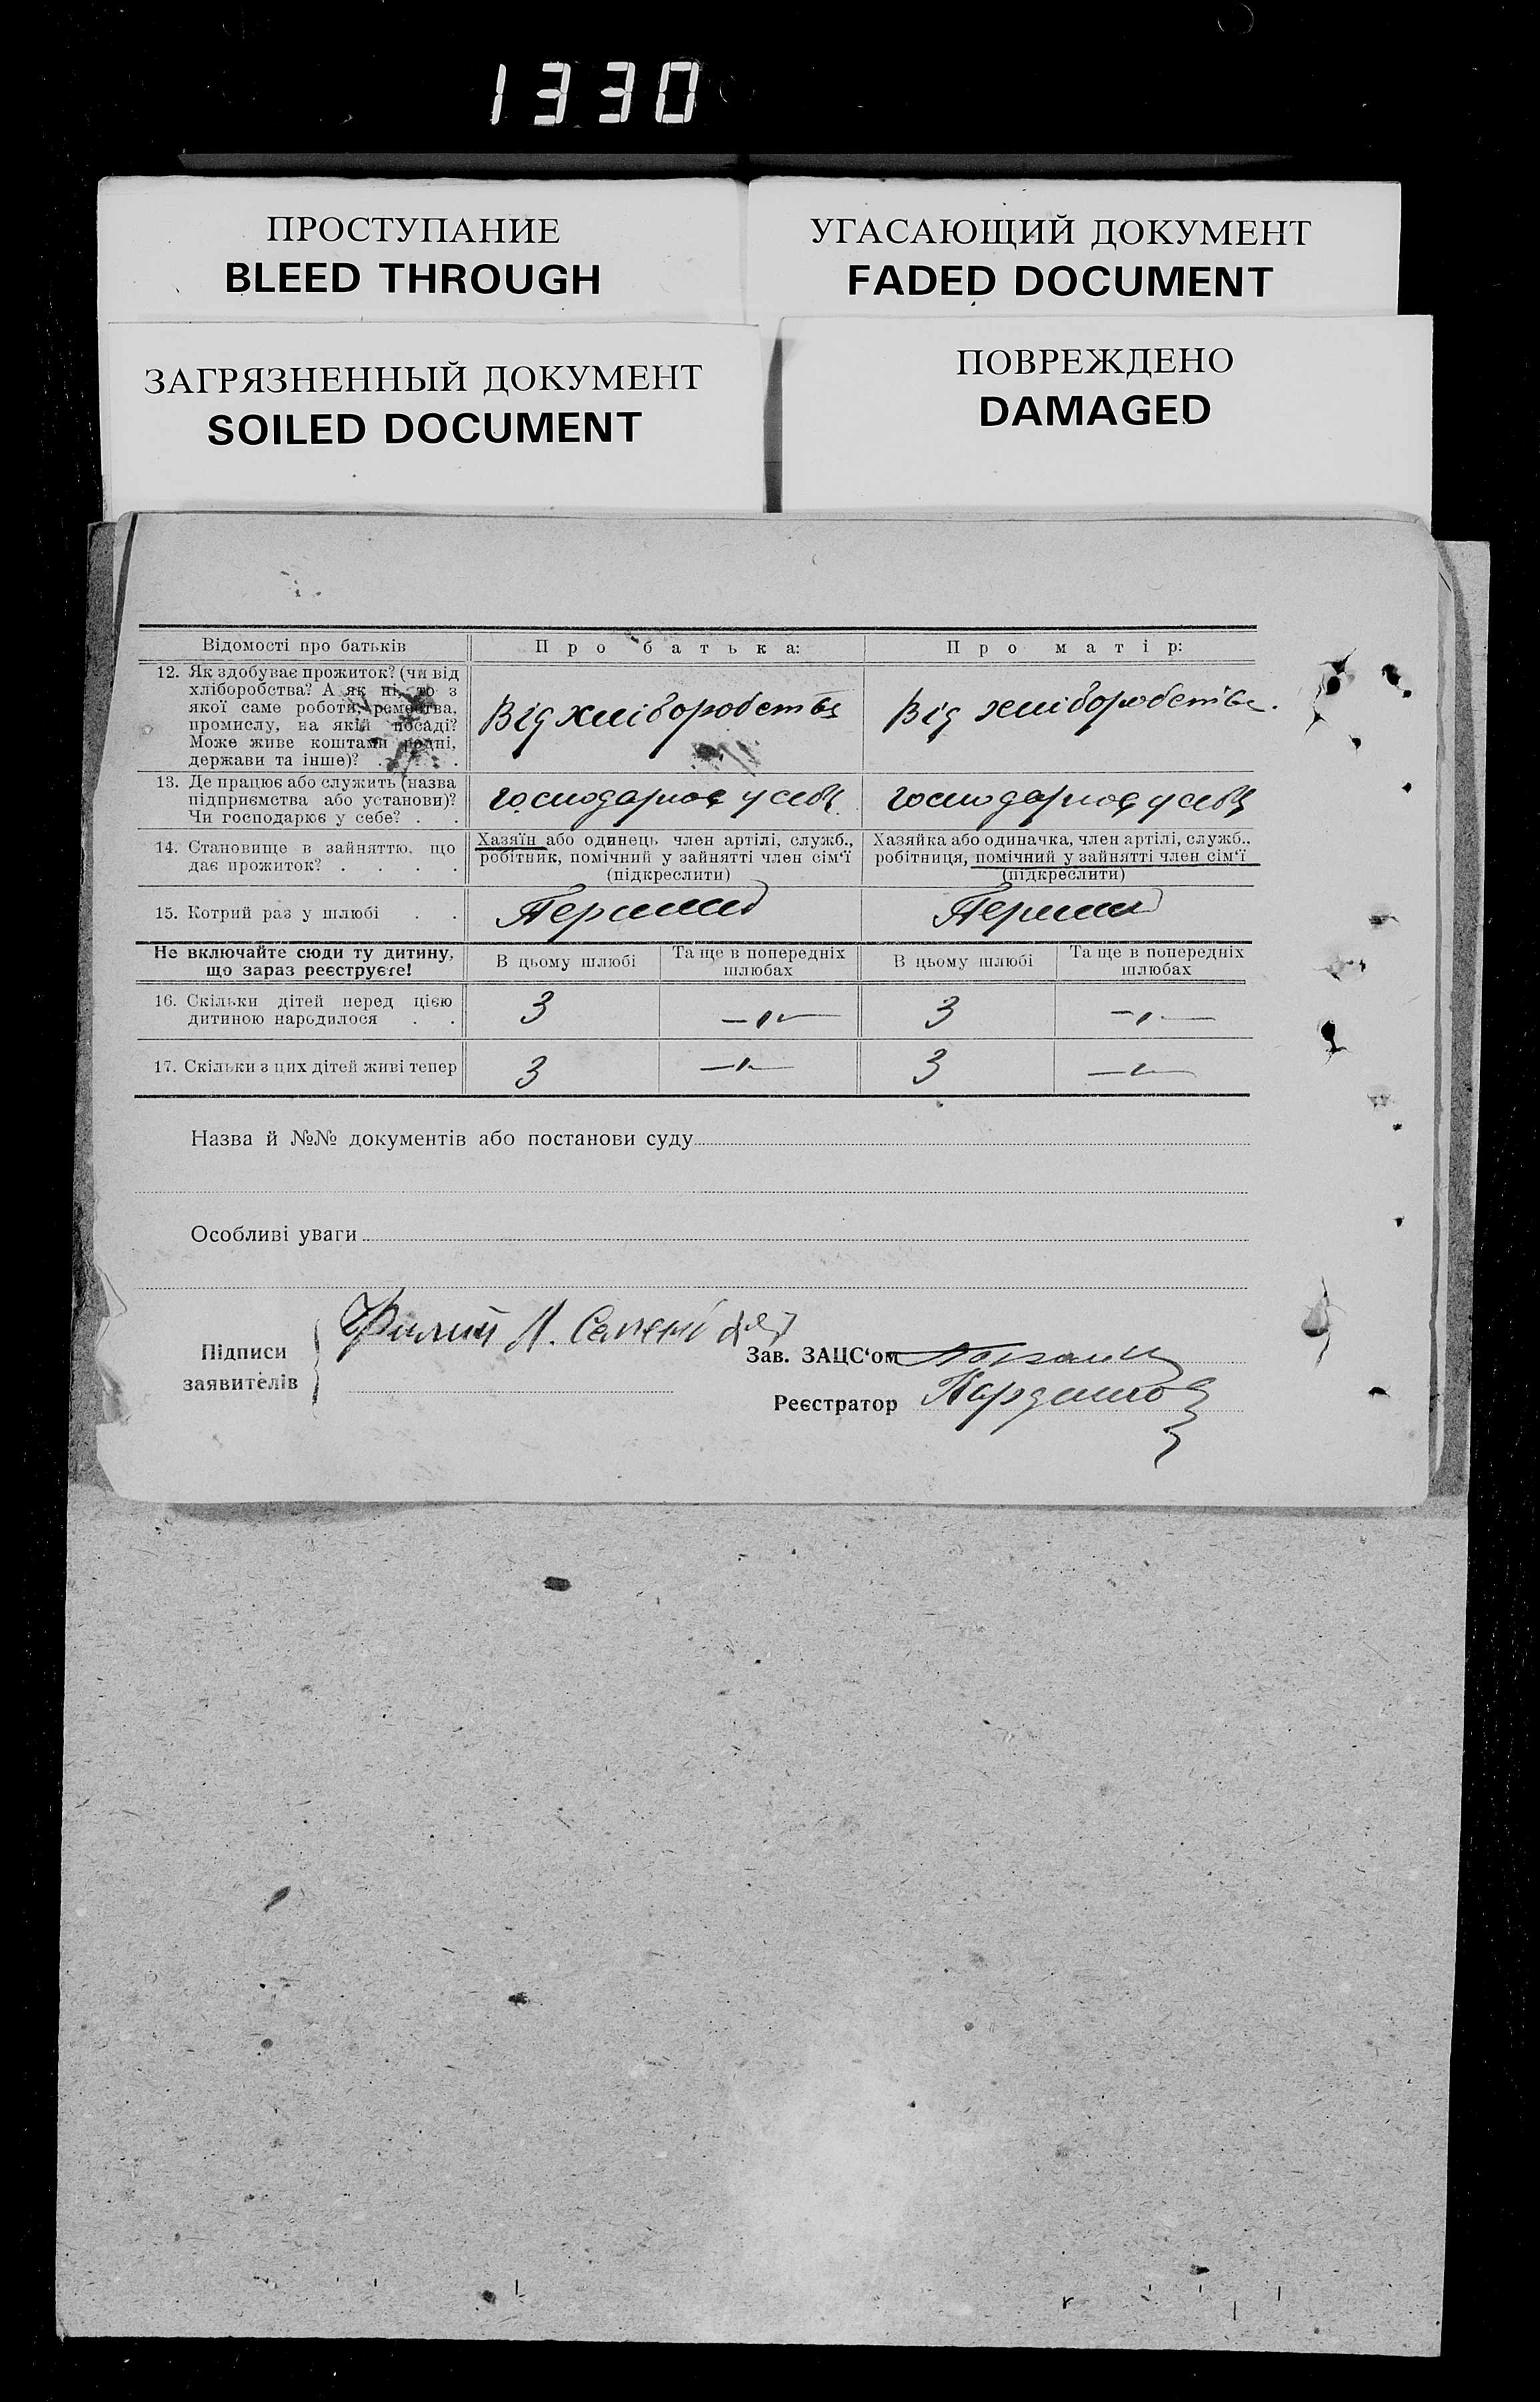 1330
ПРОСТУПАНИЕ
BLEED THROUGH
УГАСАЮЩИЙ ДОКУМЕНТ
FADED DOCUMENT
ЗАГРЯЗНЕННЫЙ ДОКУМЕНТ
SOILED DOCUMENT
ПОВРЕЖДЕНО
DAMAGED
Відомості про батьків
Про батька:
Про матір:
12. Як здобуває прожиток? (чи від
хліборобства? А як ні, то з
якої саме роботи, ремества,
промислу, на якій посаді?
Може живе коштами родні,
держави та інше)? . . . .
Від хліборобства
Від хліборобства.
13. Де працює або служить (назва
підприємства або установи)?
Чи господарює у себе? . .
господарює у себе
господарює у себе
14. Становище в зайняттю, що
дає прожиток? . . . .
Хазяїн або одинець, член артілі, служб.,
робітник, помічний у зайнятті член сім'ї
(підкреслити)
Хазяйка або одиначка, член артілі, служб.,
робітниця, помічний у зайнятті член сім'ї
(підкреслити)
15. Котрий раз у шлюбі . .
Перший
Перший
Не включайте сюди ту дитину,
що зараз реєструєте!
В цьому шлюбі
Та ще в попередніх
шлюбах
В цьому шлюбі
Та ще в попередніх
шлюбах
16. Скільки дітей перед цією
дитиною народилося . .
3
—〃—
3
—〃—
17. Скільки з цих дітей живі тепер
3
—〃—
3
—〃—
Назва й №№ документів або постанови суду
Особливі уваги
Підписи
заявителів
Зав. ЗАЦС'ом
Реєстратор